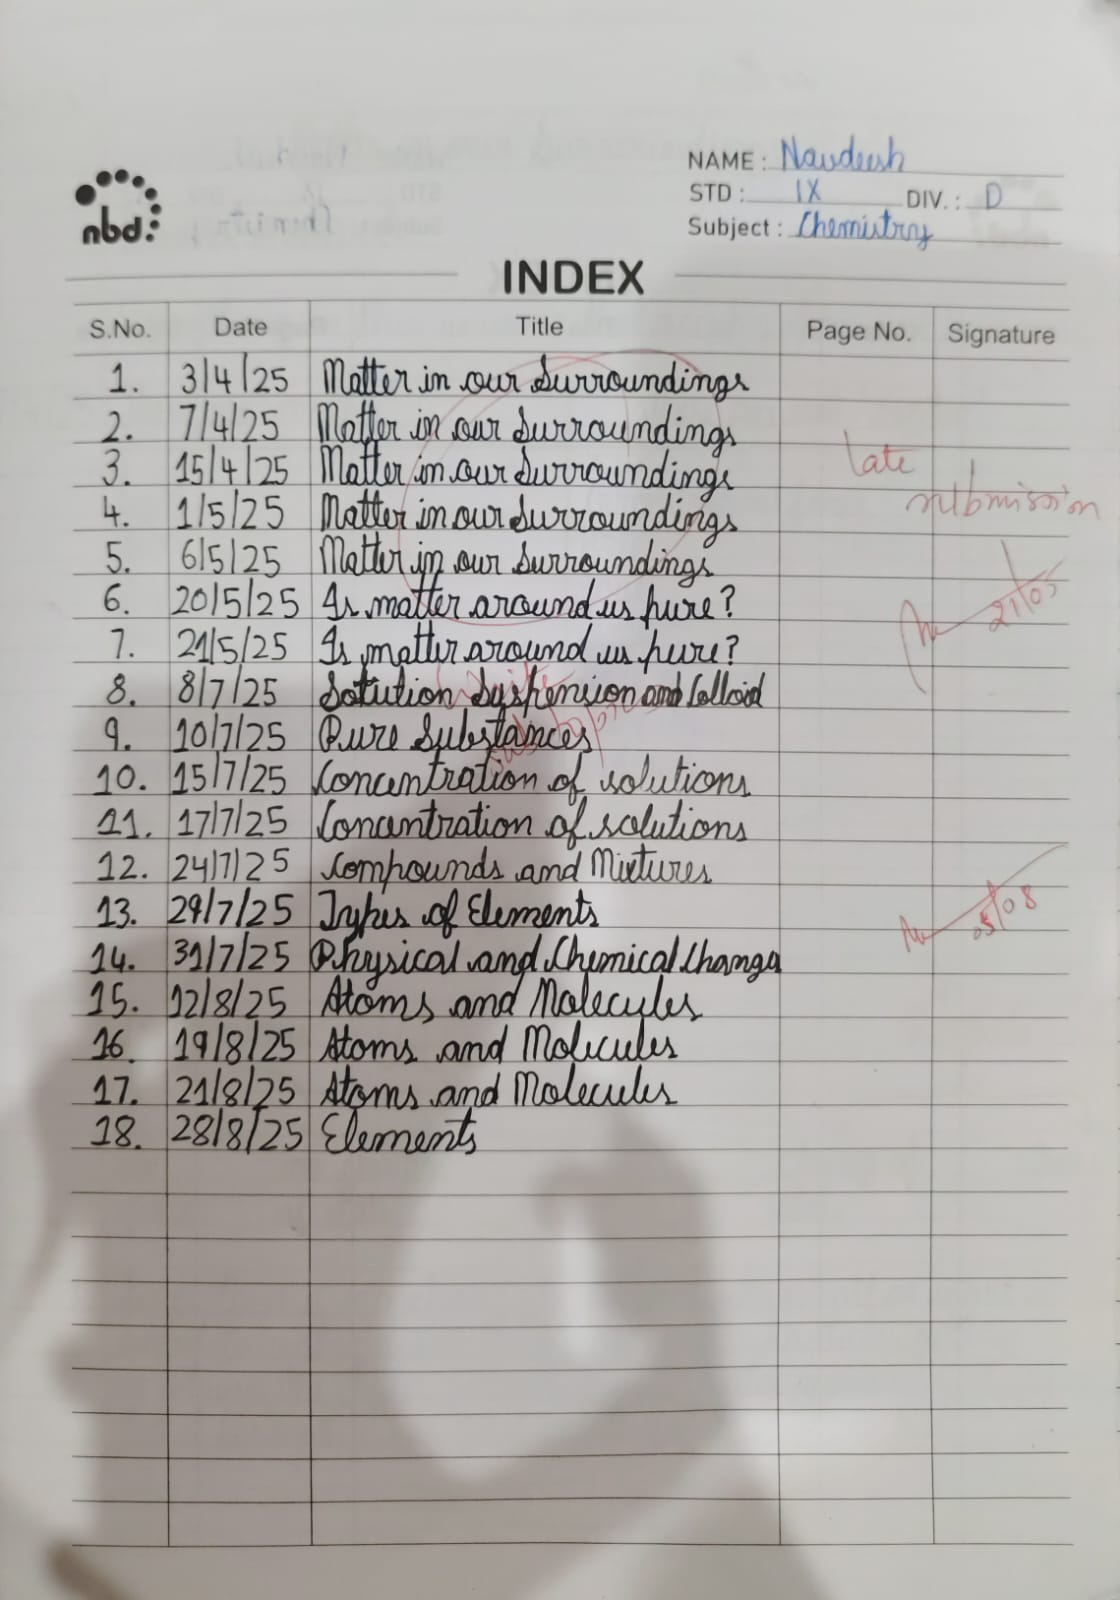 nbd
NAME : Navdeesh
STD : IX DIV. : D
Subject : Chemistry
INDEX
S.No. Date Title Page No. Signature
1. 3/4/25 Matter in our Surroundings
2. 7/4/25 Matter in our Surroundings
3. 15/4/25 Matter in our Surroundings
late
4. 1/5/25 Matter in our Surroundings
submission
5. 6/5/25 Matter in our Surroundings
6. 20/5/25 Is matter around us pure?
21/05
7. 21/5/25 Is matter around us pure?
8. 8/7/25 Solution Suspension and Colloid
Write
9. 10/7/25 Pure Substances
10. 15/7/25 Concentration of solutions
11. 17/7/25 Concentration of solutions
12. 24/7/25 Compounds and Mixtures
13. 29/7/25 Types of Elements
05/08
14. 31/7/25 Physical and Chemical Change
15. 12/8/25 Atoms and Molecules
16. 19/8/25 Atoms and Molecules
17. 21/8/25 Atoms and Molecules
18. 28/8/25 Elements